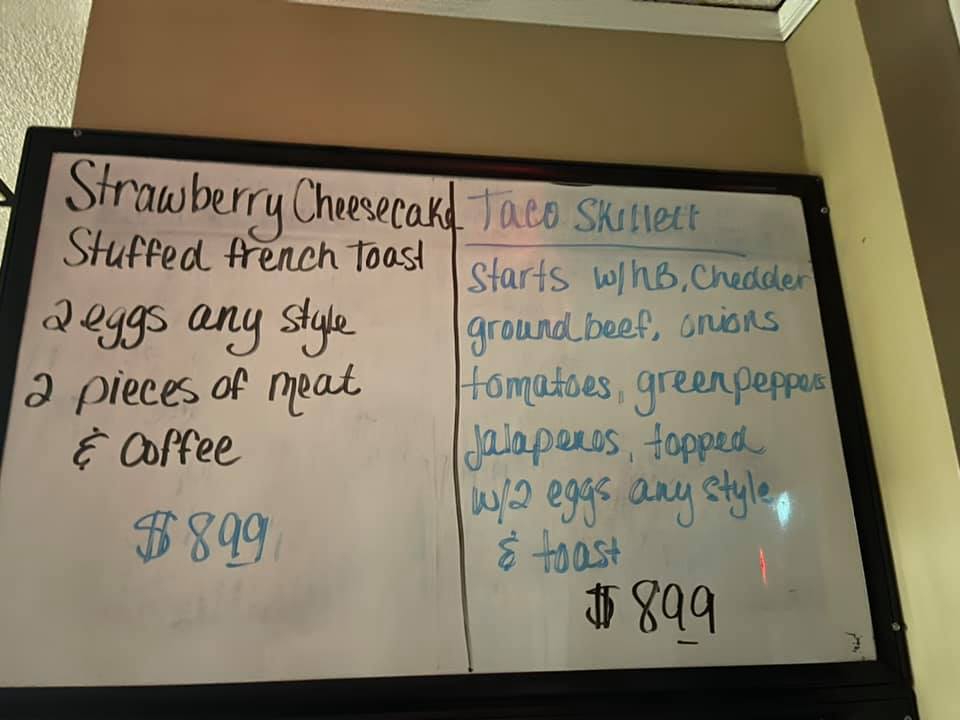 Strawberry Cheesecake
Stuffed french Toast
2 eggs any style
2 pieces of meat
& Coffee
$899
Taco Skillett
Starts w/hB, Chedder
ground beef, onions
tomatoes, green peppers
Jalapenos, topped
w/2 eggs any style
& toast
$899